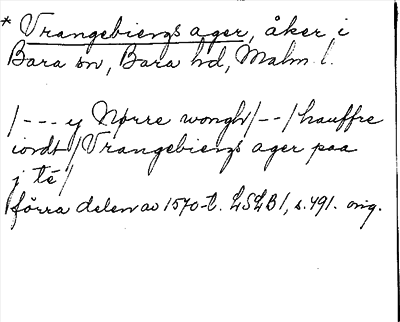 * Vrangebiergs ager, åker i
Bara sn, Bara hd, Malm. l.
/--- y Nørre wongh/--/hauffre
iordt/Vrangebiergs ager paa
j té/
förra delen av 1570-t. LSLB1, s. 491. orig.